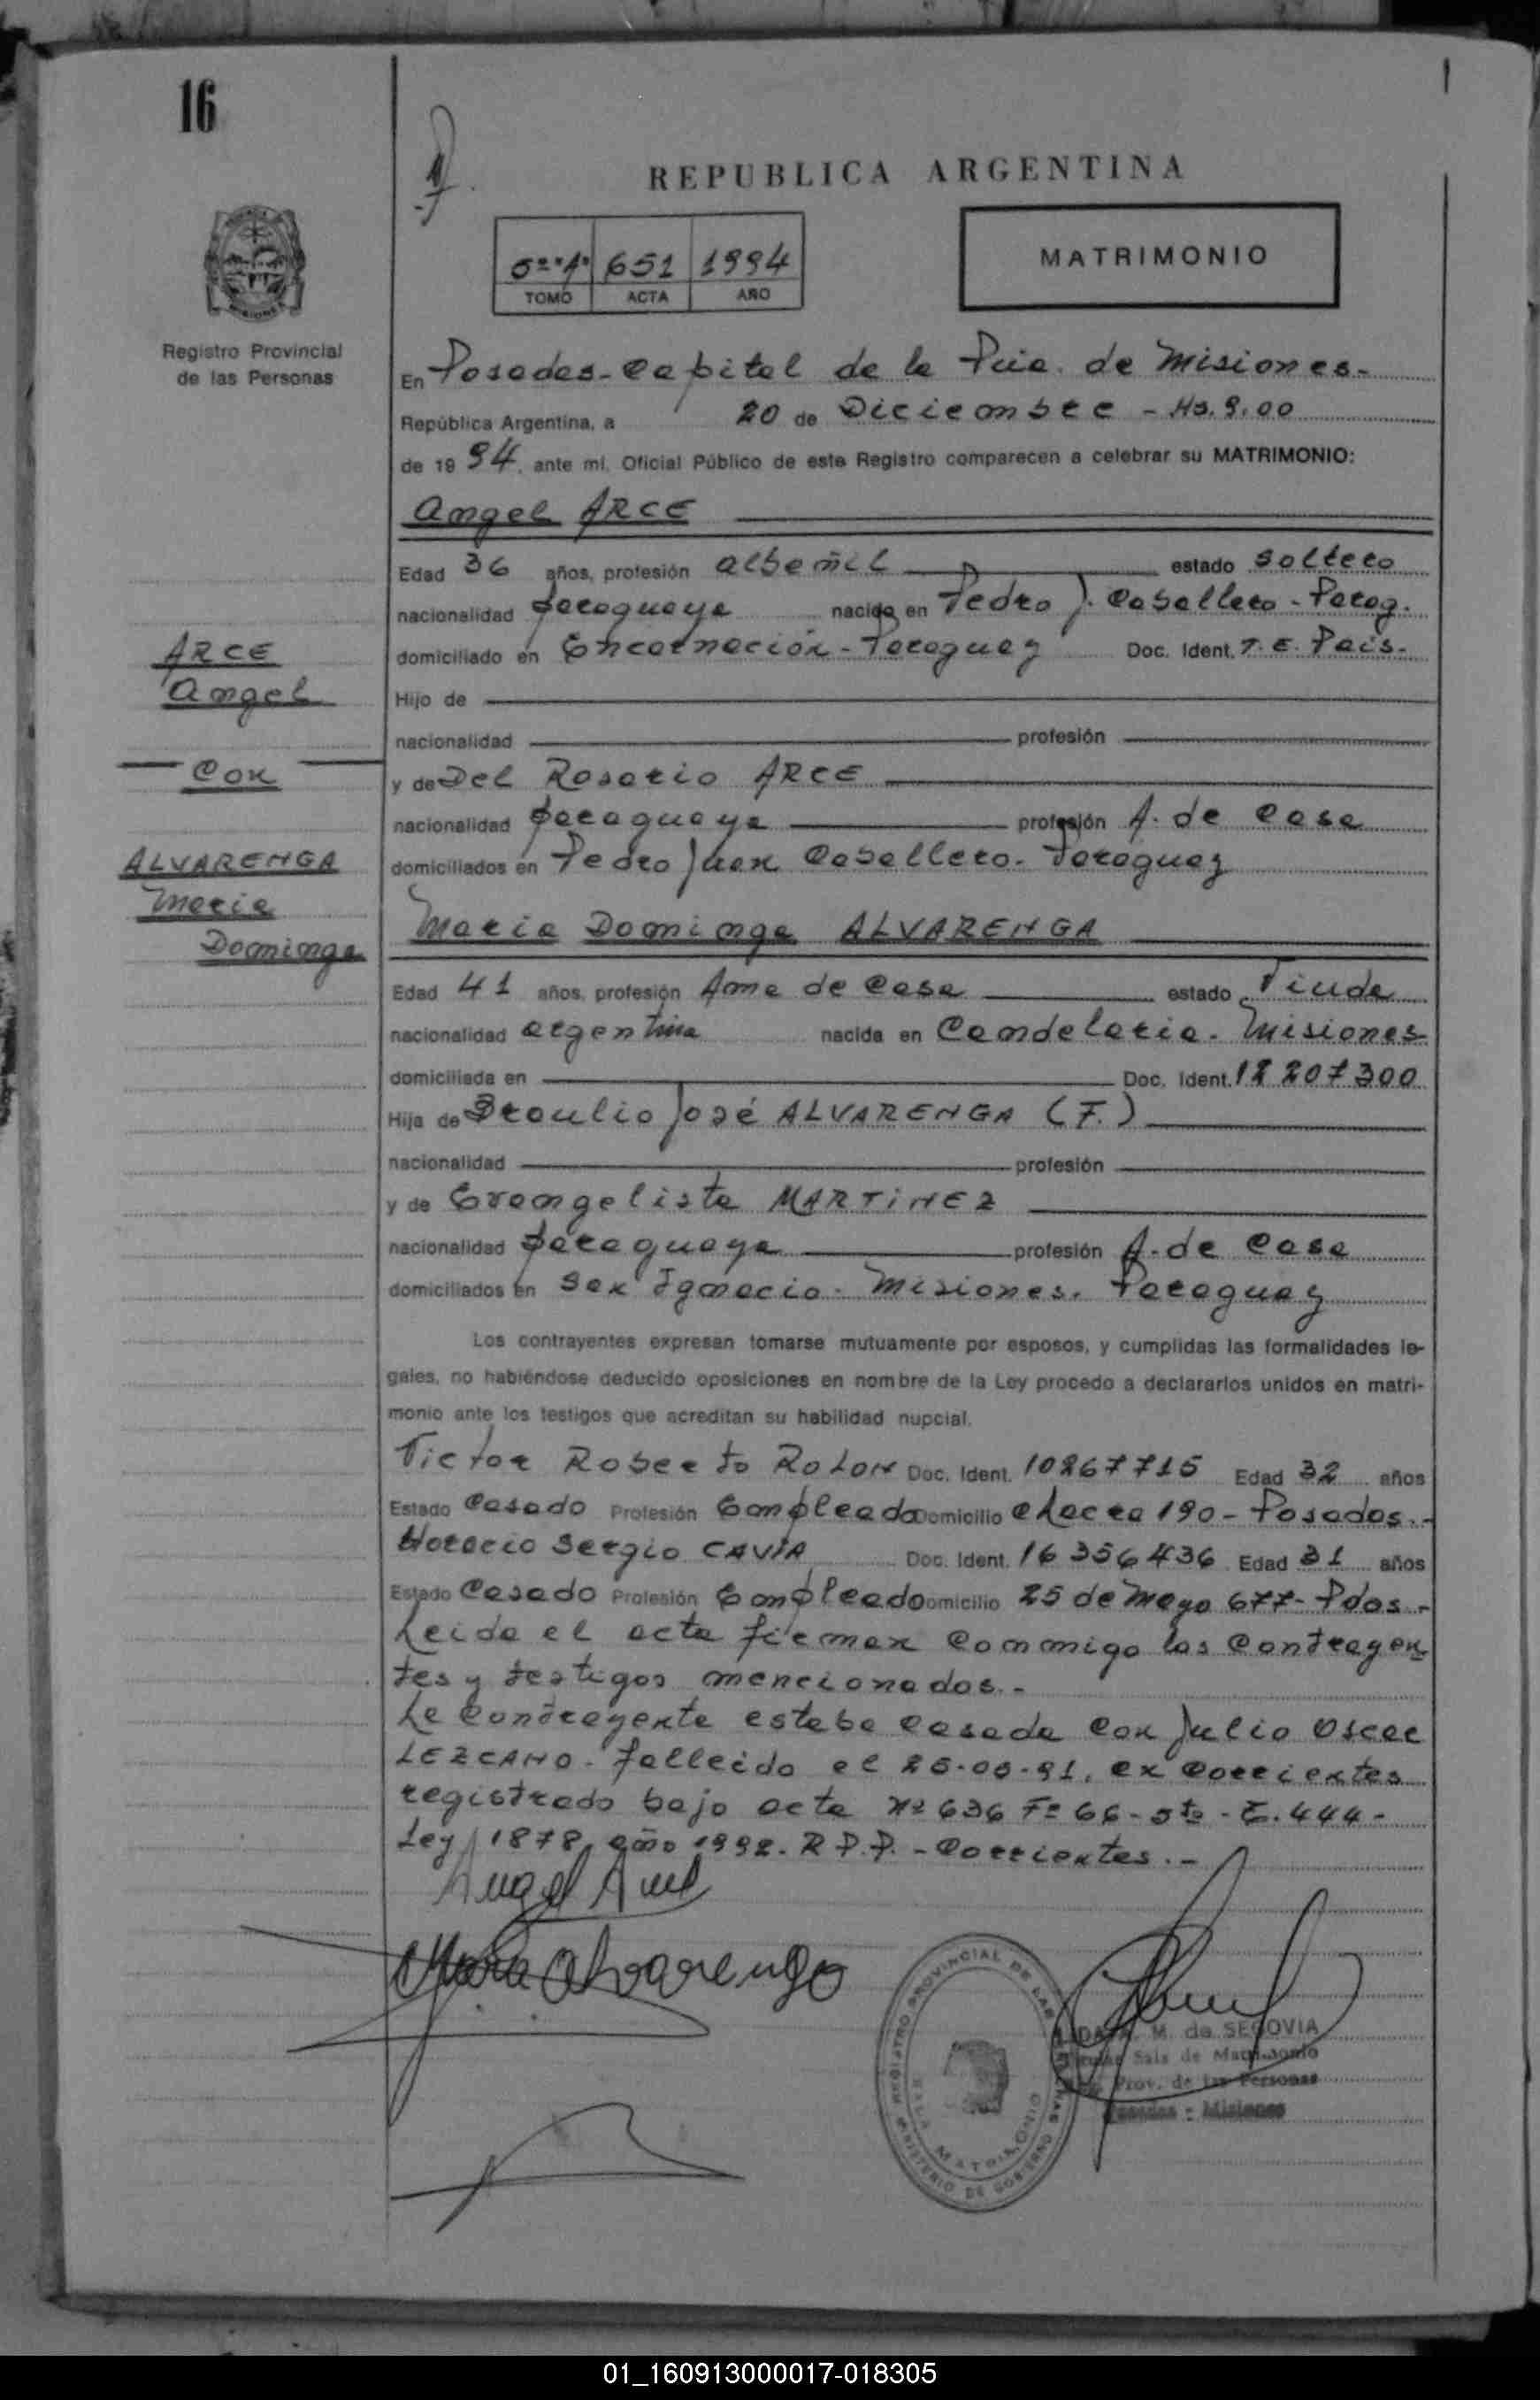 16
REPUBLICA ARGENTINA
5º "A" 651 1994
TOMO ACTA AÑO
MATRIMONIO
Registro Provincial
de las Personas
En Posadas - Capital de la Pcia. de Misiones -
República Argentina, a 20 de Diciembre - Hs. 9,00
de 19 94, ante mí, Oficial Público de este Registro comparecen a celebrar su MATRIMONIO:
Angel ARCE
Edad 36 años, profesión albañil estado soltero
nacionalidad paraguaya nacido en Pedro J. Caballero - Parag.
domiciliado en Encarnación - Paraguay Doc. Ident. T. E. País -
Hijo de
nacionalidad profesión
y de Del Rosario ARCE
nacionalidad paraguaya profesión A. de Casa
domiciliados en Pedro Juan Caballero - Paraguay
ARCE
Angel
Con
ALVARENGA
Maria
Dominga
Maria Dominga ALVARENGA
Edad 41 años, profesión Ama de Casa estado Viuda
nacionalidad argentina nacida en Candelaria - Misiones
domiciliada en Doc. Ident. 12 207 300
Hija de Braulio José ALVARENGA (F.)
nacionalidad profesión
y de Evangelista MARTINEZ
nacionalidad paraguaya profesión A. de Casa
domiciliados en San Ignacio - Misiones. Paraguay
Los contrayentes expresan tomarse mutuamente por esposos, y cumplidas las formalidades le-
gales, no habiéndose deducido oposiciones en nombre de la Ley procedo a declararlos unidos en matri-
monio ante los testigos que acreditan su habilidad nupcial.
Victor Roberto ROLON Doc. Ident. 10267715 Edad 32 años
Estado Casado Profesión Empleado Domicilio Chacra 190 - Posadas.-
Horacio Sergio CAVIA Doc. Ident. 16 356 436 Edad 31 años
Estado Casado Profesión Empleado Domicilio 25 de Mayo 677 - Pdas.-
Leida el acta firman conmigo los Contrayen
tes y testigos mencionados.-
La Contrayente estaba casada con Julio Oscar
LEZCANO - fallecido el 25-05-91, en Corrientes
registrado bajo acta Nº 636 Fº 66 - 5to - T. 444 -
Ley 1878, año 1992. R.P.P. - Corrientes.-
Angel Arce
Maria Alvarenga
REGISTRO PROVINCIAL DE LAS PERSONAS
SALA MATRIMONIO
MINISTERIO DE GOBIERNO
M. de SEGOVIA
Sala de Matrimonio
Prov. de las Personas
Posadas - Misiones
01_160913000017-018305